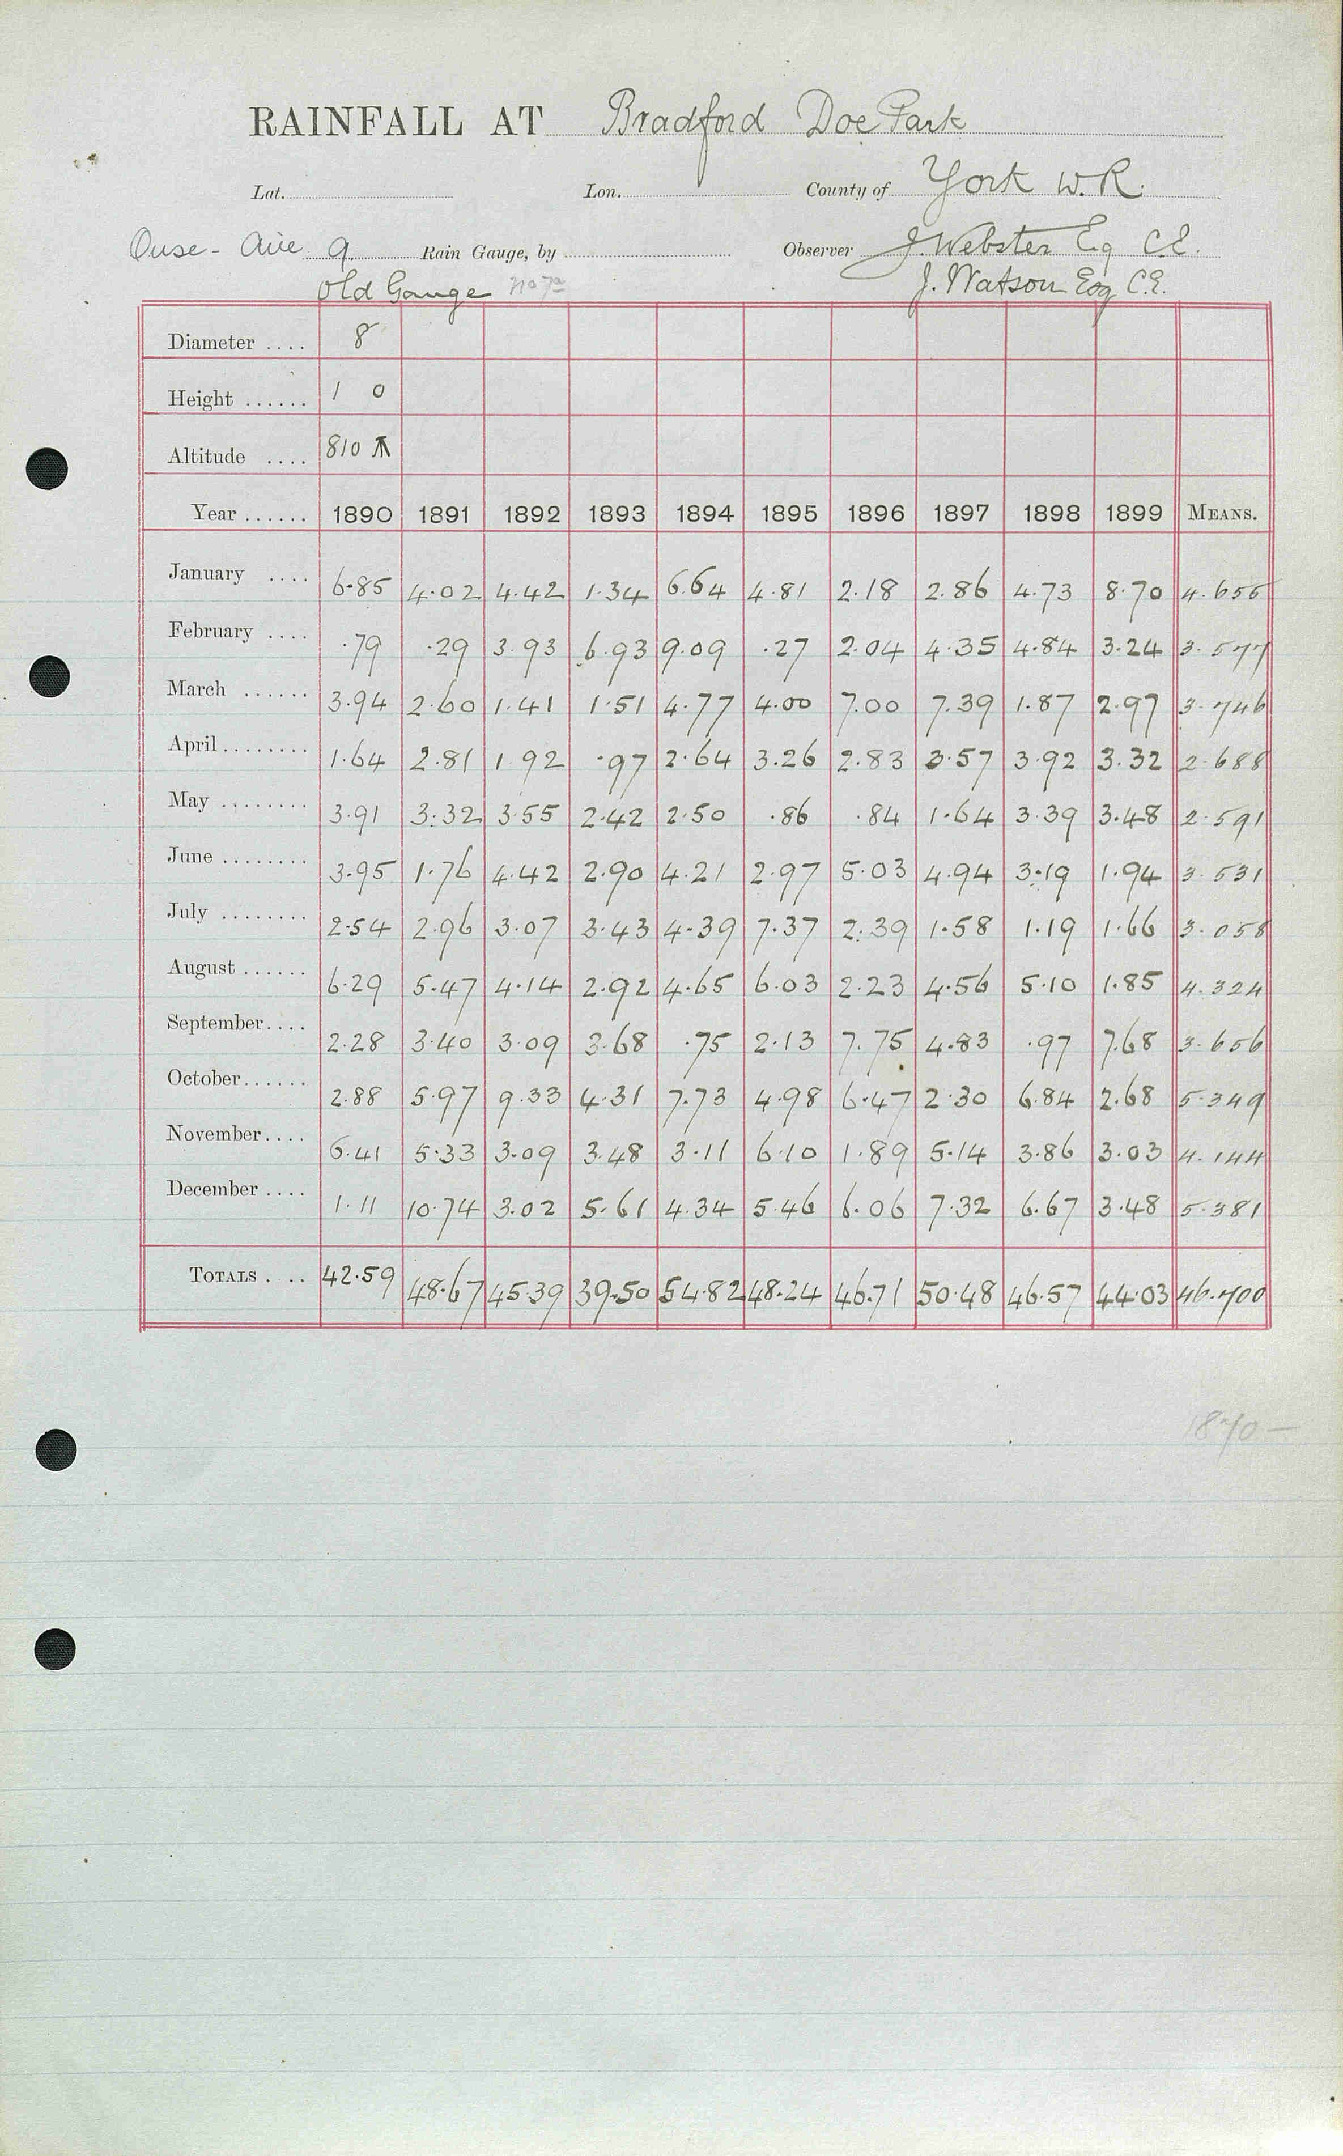 RAINFALL AT Bradford Doe Park
Lat. Lon. County of York W.R.
Ouse - Aire 9 Rain Gauge, by Observer J. Webster Esq C.E.
Old Gauge No 7a J. Watson Esq C.E.
Diameter .... 8
Height ...... 1 0
Altitude .... 810
Year ...... 1890 1891 1892 1893 1894 1895 1896 1897 1898 1899 MEANS.
January .... 6.85 4.02 4.42 1.34 6.64 4.81 2.18 2.86 4.73 8.70 4.655
February .... .79 .29 3.93 6.93 9.09 .27 2.04 4.35 4.84 3.24 3.577
March ...... 3.94 2.60 1.41 1.51 4.77 4.00 7.00 7.39 1.87 2.97 3.746
April ........ 1.64 2.81 1.92 .97 2.64 3.26 2.83 3.57 3.92 3.32 2.688
May ........ 3.91 3.32 3.55 2.42 2.50 .86 .84 1.64 3.39 3.48 2.591
June ........ 3.95 1.76 4.42 2.90 4.21 2.97 5.03 4.94 3.19 1.94 3.531
July ........ 2.54 2.96 3.07 3.43 4.39 7.37 2.39 1.58 1.19 1.66 3.058
August ...... 6.29 5.47 4.14 2.92 4.65 6.03 2.23 4.56 5.10 1.85 4.324
September .... 2.28 3.40 3.09 3.68 .75 2.13 7.75 4.83 .97 7.68 3.656
October ...... 2.88 5.97 9.33 4.31 7.73 4.98 6.47 2.30 6.84 2.68 5.349
November .... 6.41 5.33 3.09 3.48 3.11 6.10 1.89 5.14 3.86 3.03 4.144
December .... 1.11 10.74 3.02 5.61 4.34 5.46 6.06 7.32 6.67 3.48 5.381
TOTALS . .. 42.59 48.67 45.39 39.50 54.82 48.24 46.71 50.48 46.57 44.03 46.700
1870 —